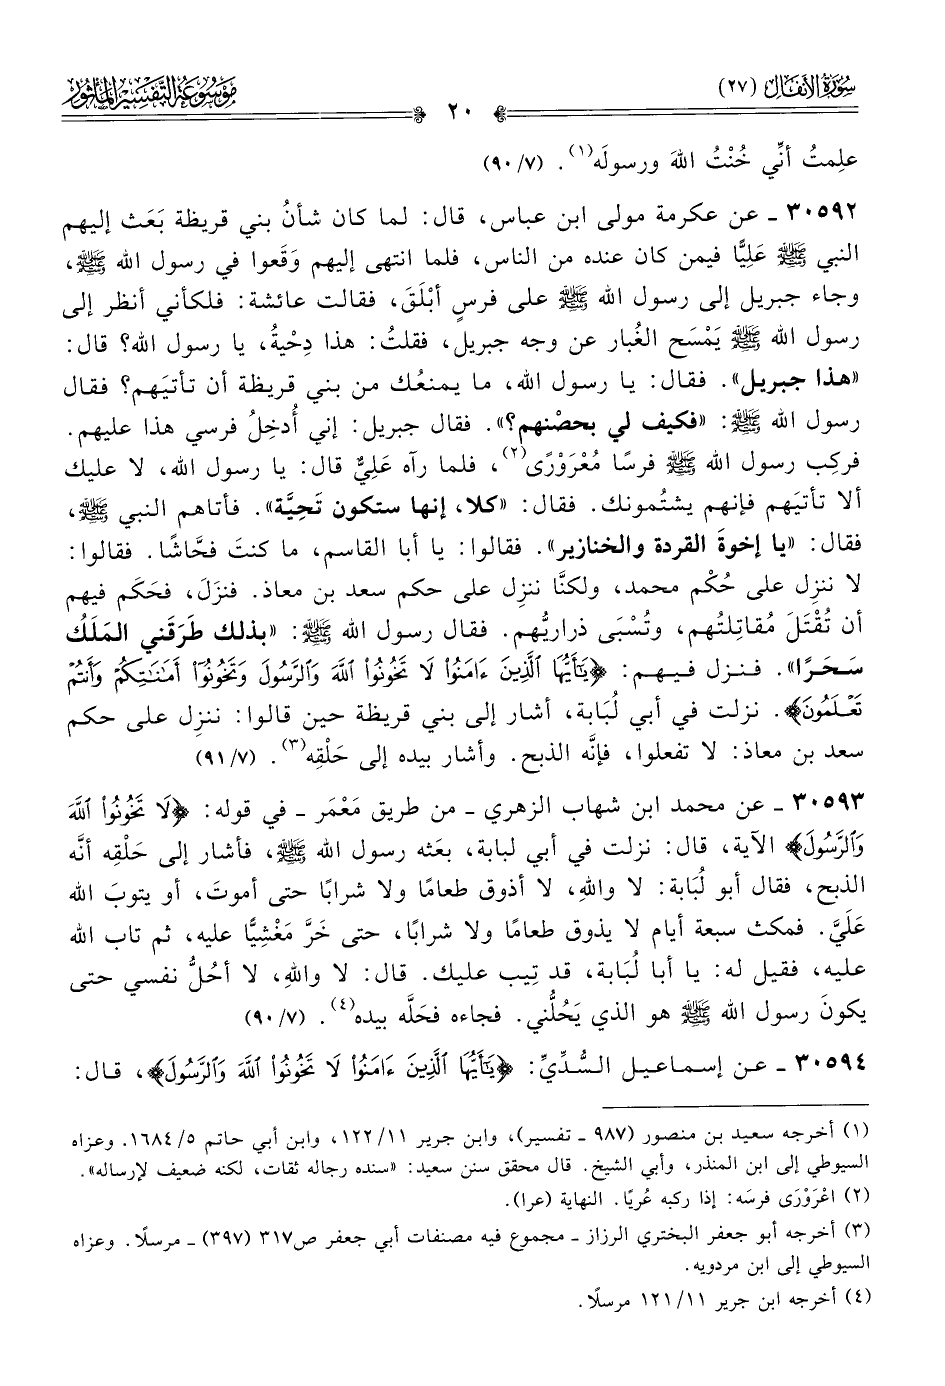 سُورَةُ الأَنفَال (٢٧)
٢٠
مَوْسُوعَةُ التَّفْسِيرِ المَأْثُور
علِمتُ أنِّي خُنْتُ اللهَ ورسولَه(١). (٧/ ٩٠)
٣٠٥٩٢ ـ عن عكرمة مولى ابن عباس، قال: لما كان شأنُ بني قريظة بَعَث إليهم
النبي ﷺ عَلِيًّا فيمن كان عنده من الناس، فلما انتهى إليهم وَقَعوا في رسول الله ﷺ،
وجاء جبريل إلى رسول الله ﷺ على فرسٍ أبْلَقَ، فقالت عائشة: فلكأني أنظر إلى
رسول الله ﷺ يَمْسَح الغُبار عن وجه جبريل، فقلتُ: هذا دِحْيةُ، يا رسول الله؟ قال:
«هذا جبريل». فقال: يا رسول الله، ما يمنعُك من بني قريظة أن تأتيَهم؟ فقال
رسول الله ﷺ: «فكيف لي بحصْنهم؟». فقال جبريل: إني أُدخِلُ فرسي هذا عليهم.
فركِب رسول الله ﷺ فرسًا مُعْرَوْرًى(٢)، فلما رآه عَلِيٌّ قال: يا رسول الله، لا عليك
ألا تأتيَهم فإنهم يشتُمونك. فقال: «كلا، إنها ستكون تَحِيَّة». فأتاهم النبي ﷺ،
فقال: «يا إخوةَ القردة والخنازير». فقالوا: يا أبا القاسم، ما كنتَ فحَّاشًا. فقالوا:
لا ننزل على حُكْم محمد، ولكنَّا ننزِل على حكم سعد بن معاذ. فنزَلَ، فحَكَم فيهم
أن تُقْتَلَ مُقاتِلتُهم، وتُسْبَى ذراريُّهم. فقال رسول الله ﷺ: «بذلك طَرَقَني المَلَكُ
سَحَرًا». فنزل فيهم: ﴿يَٰٓأَيُّهَا ٱلَّذِينَ ءَامَنُوا۟ لَا تَخُونُوا۟ ٱللَّهَ وَٱلرَّسُولَ وَتَخُونُوٓا۟ أَمَٰنَٰتِكُمْ وَأَنتُمْ
تَعْلَمُونَ﴾. نزلت في أبي لُبَابة، أشار إلى بني قريظة حين قالوا: ننزل على حكم
سعد بن معاذ: لا تفعلوا، فإنَّه الذبح. وأشار بيده إلى حَلْقِه(٣). (٧/ ٩١)
٣٠٥٩٣ ـ عن محمد ابن شهاب الزهري ـ من طريق مَعْمَر ـ في قوله: ﴿لَا تَخُونُوا۟ ٱللَّهَ
وَٱلرَّسُولَ﴾ الآية، قال: نزلت في أبي لبابة، بعَثه رسول الله ﷺ، فأشار إلى حَلْقِه أنَّه
الذبح، فقال أبو لُبَابة: لا واللهِ، لا أذوق طعامًا ولا شرابًا حتى أموتَ، أو يتوبَ الله
عَلَيَّ. فمكث سبعة أيام لا يذوق طعامًا ولا شرابًا، حتى خَرَّ مَغْشِيًّا عليه، ثم تاب الله
عليه، فقيل له: يا أبا لُبَابة، قد تِيب عليك. قال: لا واللهِ، لا أحُلُّ نفسي حتى
يكونَ رسول الله ﷺ هو الذي يَحُلُّني. فجاءه فحَلَّه بيده(٤). (٧/ ٩٠)
٣٠٥٩٤ ـ عن إسماعيل السُّدِّيِّ: ﴿يَٰٓأَيُّهَا ٱلَّذِينَ ءَامَنُوا۟ لَا تَخُونُوا۟ ٱللَّهَ وَٱلرَّسُولَ﴾، قال:
(١) أخرجه سعيد بن منصور (٩٨٧ ـ تفسير)، وابن جرير ١١/ ١٢٢، وابن أبي حاتم ٥/ ١٦٨٤. وعزاه
السيوطي إلى ابن المنذر، وأبي الشيخ. قال محقق سنن سعيد: «سنده رجاله ثقات، لكنه ضعيف لإرساله».
(٢) اعْرَوْرَى فرسَه: إذا ركبه عُريًا. النهاية (عرا).
(٣) أخرجه أبو جعفر البختري الرزاز ـ مجموع فيه مصنفات أبي جعفر ص٣١٧ (٣٩٧) ـ مرسلًا. وعزاه
السيوطي إلى ابن مردويه.
(٤) أخرجه ابن جرير ١١/ ١٢١ مرسلًا.